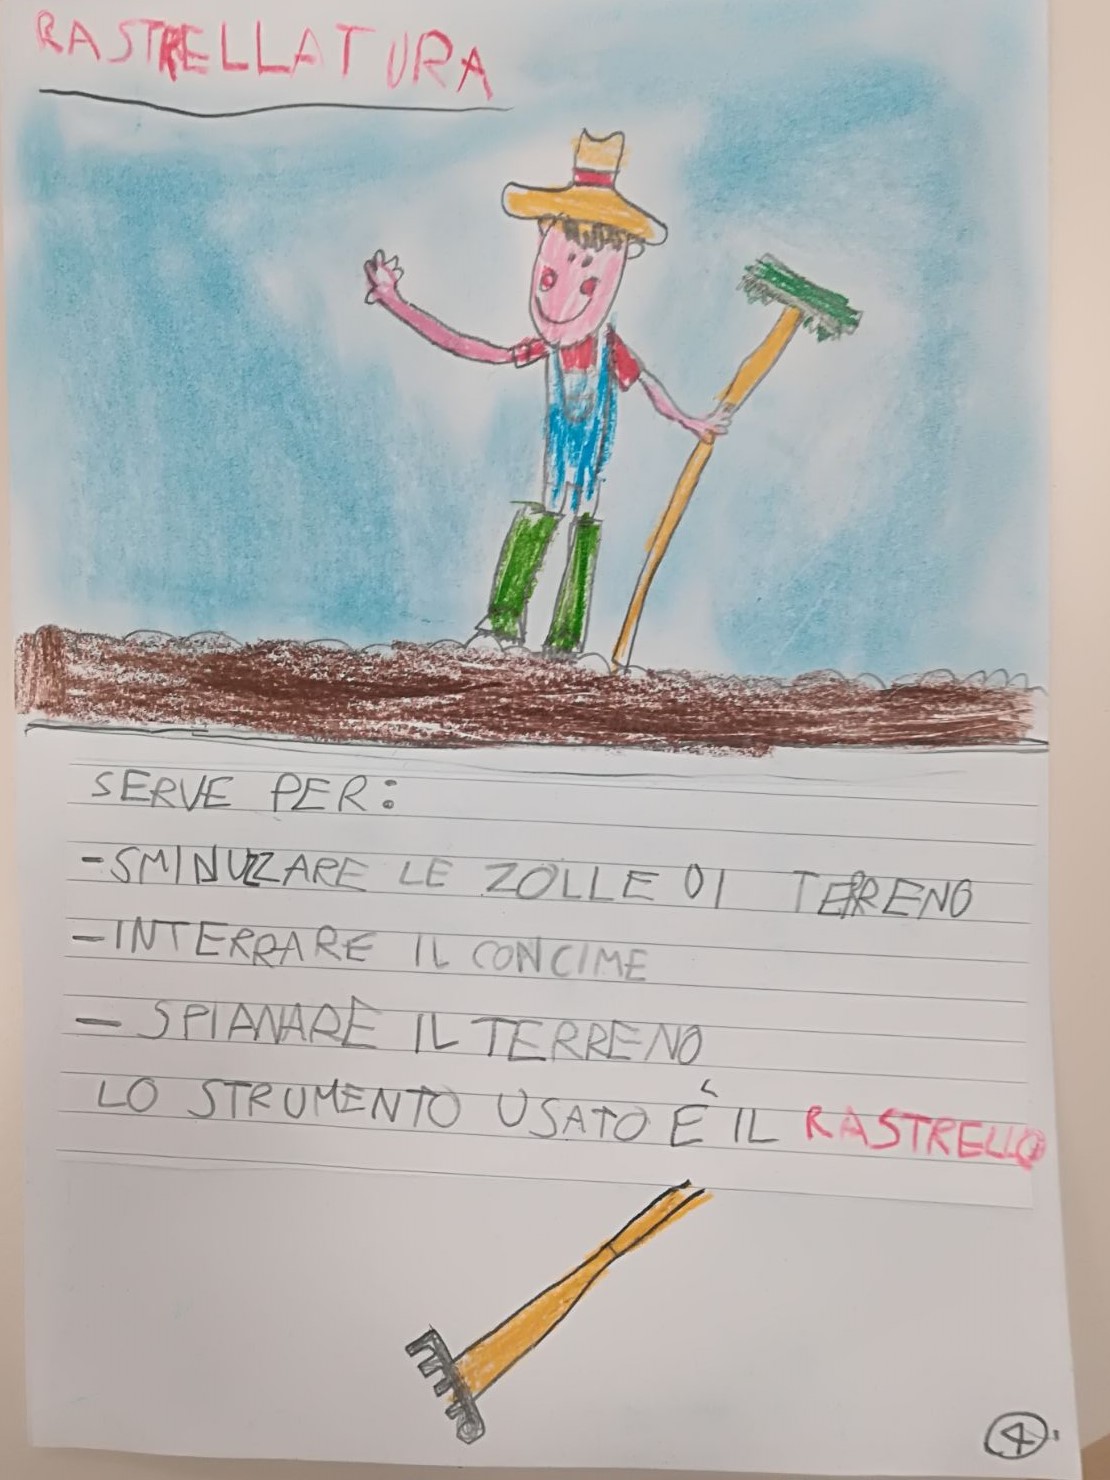 RASTRELLATURA
SERVE PER:
-SMINUZZARE LE ZOLLE DI TERRENO
-INTERRARE IL CONCIME
- SPIANARE IL TERRENO
LO STRUMENTO USATO È IL RASTRELLO
4